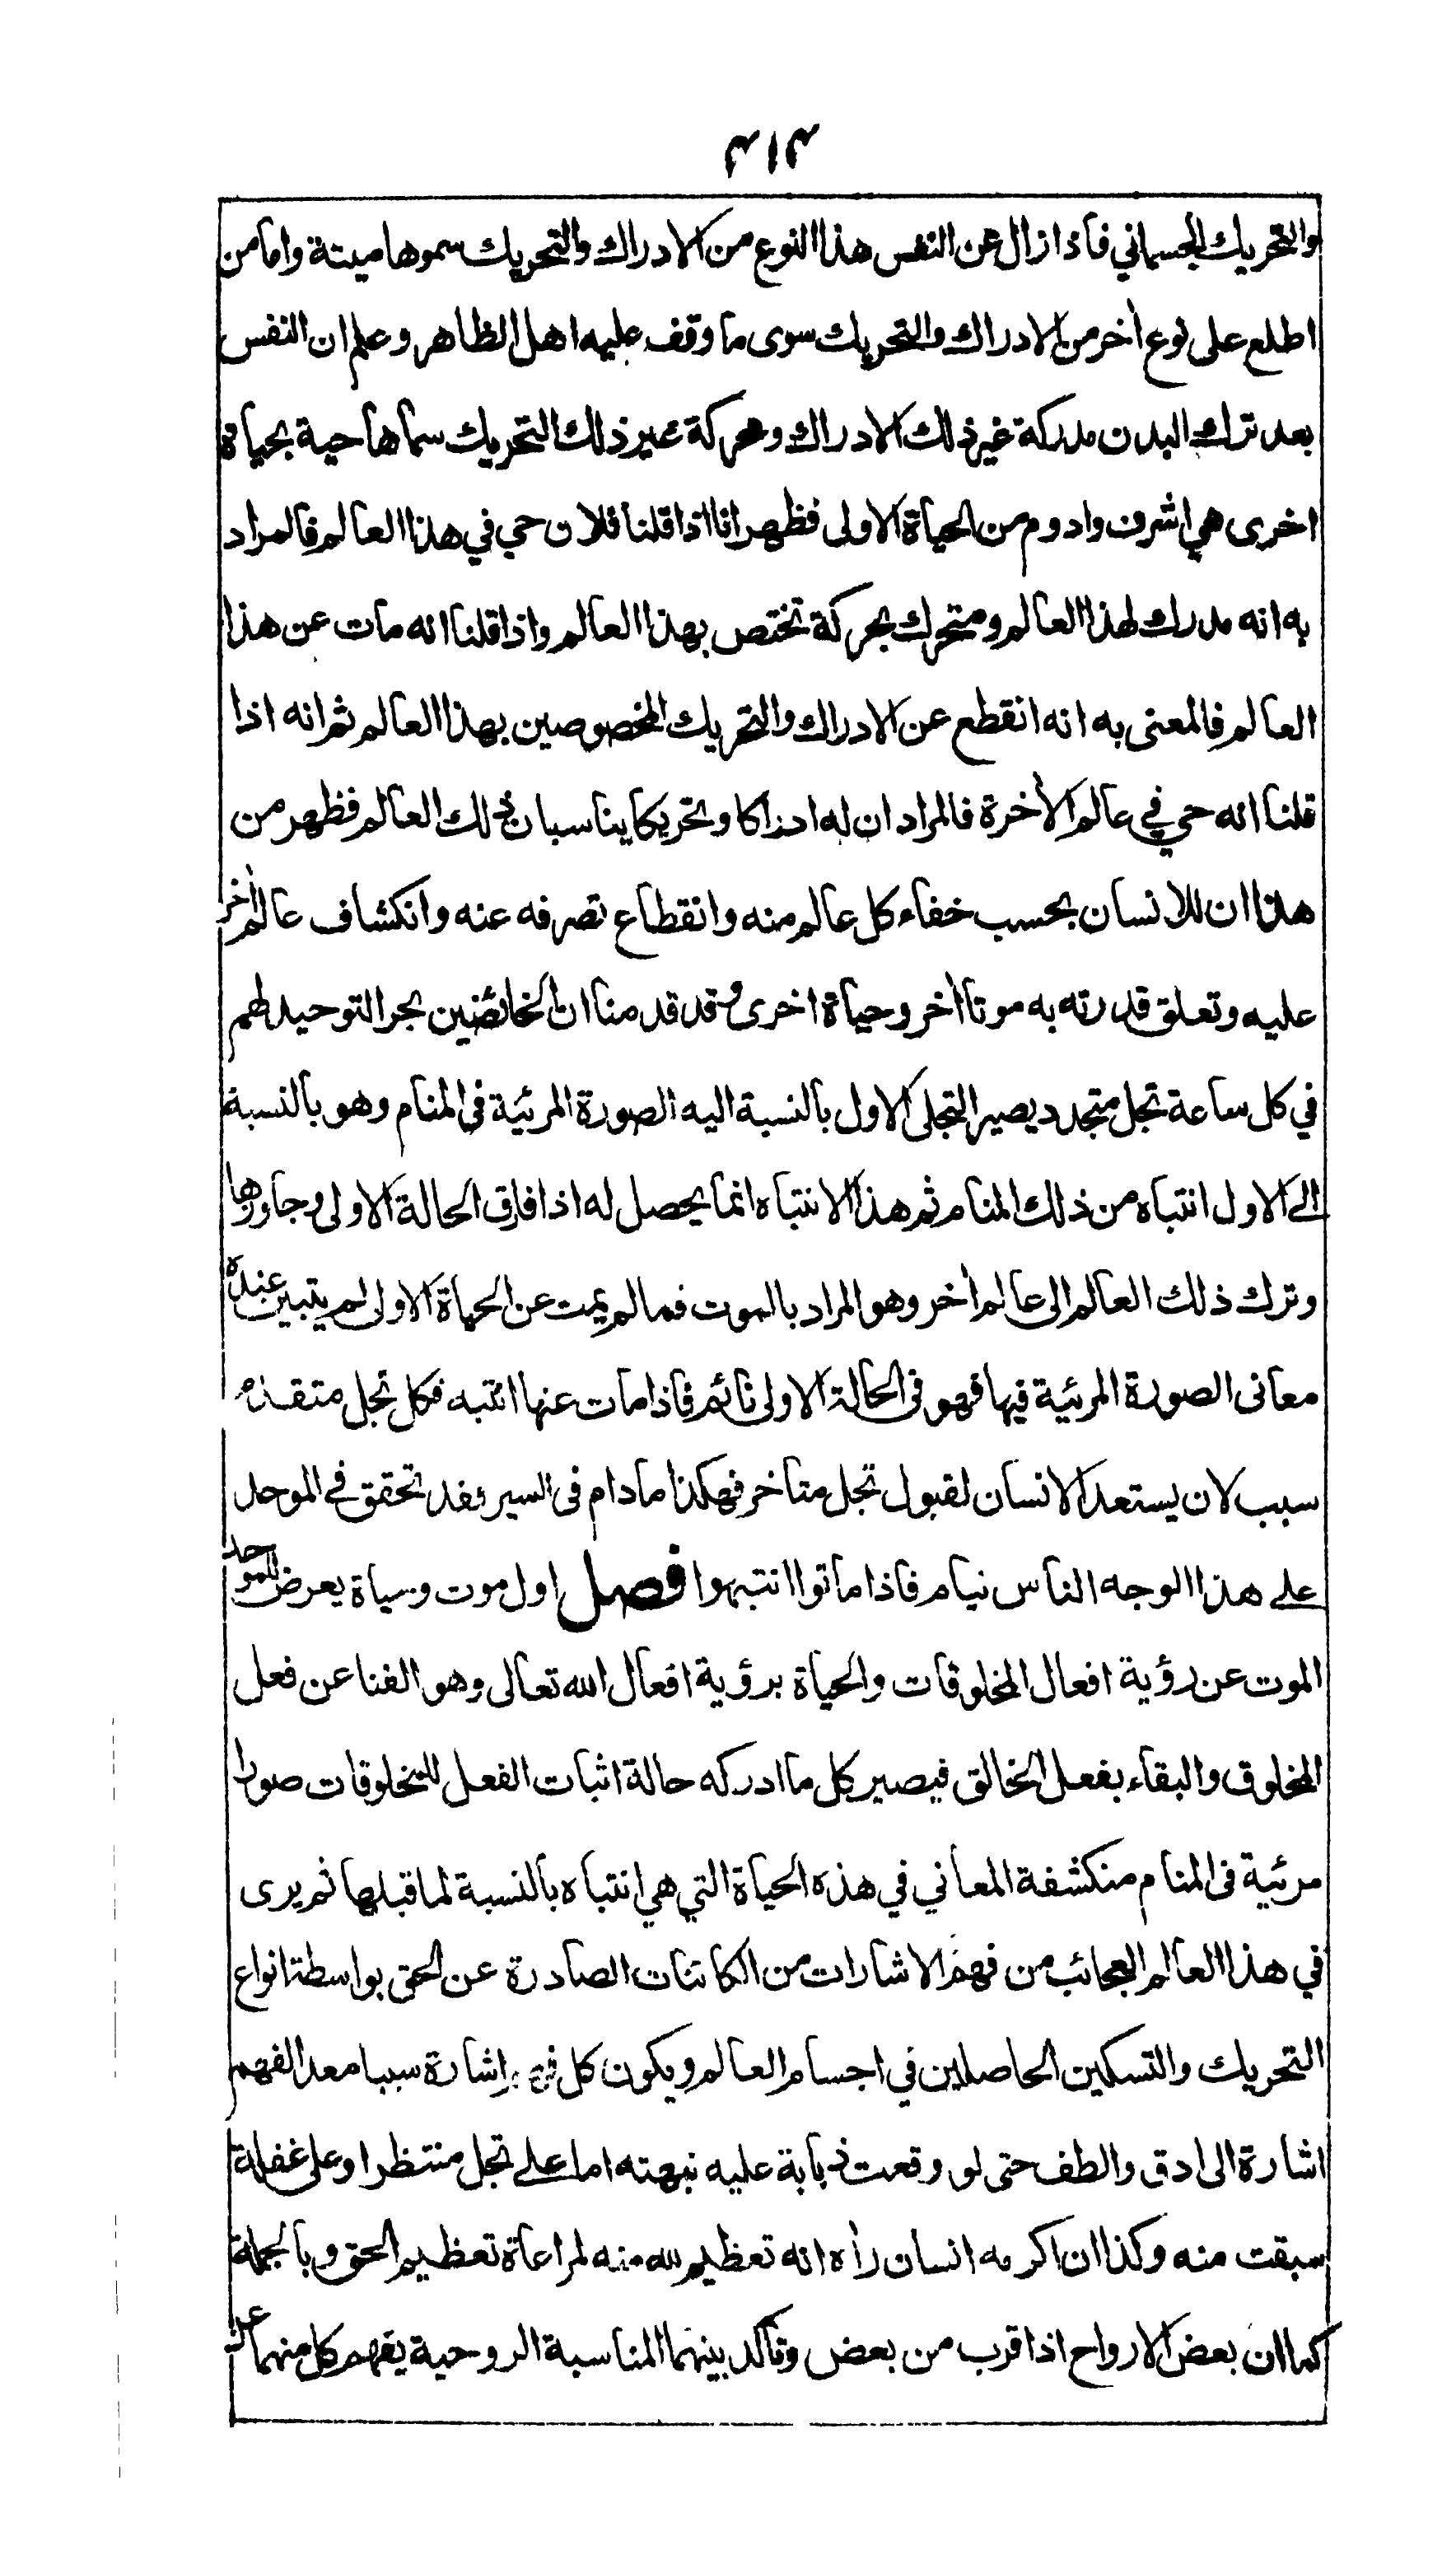 ٣١٣
والتحريك الجسماني فاذا زال عن النفس هذا النوع من الادراك والتحريك سموها ميتة واما من
اطلع على نوع أخر من الادراك والتحريك سوى ما وقف عليه اهل الظاهر وعلم ان النفس
بعد ترك البدن مدركة غير ذلك الادراك ومحركة غير ذلك التحريك سماها حية بحياة
اخرى هي اشرف وادوم من الحياة الاولى فظهر انا اذا قلنا فلان حي في هذا العالم فالمراد
به انه مدرك لهذا العالم ومتحرك بحركة تختص بهذا العالم واذا قلنا انه مات عن هذا
العالم فالمعنى به انه انقطع عن الادراك والتحريك المخصوصين بهذا العالم ثم انه اذا
قلنا انه حي في عالم الأخرة فالمراد ان له ادراكا وتحريكا يناسبان ذلك العالم فظهر من
هذا ان للانسان بحسب خفاء كل عالم منه وانقطاع تصرفه عنه وانكشاف عالم أخر
عليه وتعلق قدرته به موتا أخر وحياة اخرى وقد قدمنا ان الخائضين بحر التوحيد لهم
في كل ساعة تجل متجدد يصير التجلى الاول بالنسبة اليه الصورة المرئية في المنام وهو بالنسبة
الى الاول انتباه من ذلك المنام ثم هذا الانتباه انما يحصل له اذا فارق الحالة الاولى وجاوزها
وترك ذلك العالم الى عالم أخر وهو المراد بالموت فما لم يمت عن الحياة الاولى لم يتبين عنده
معانى الصورة المرئية فيها فهو فى الحالة الاولى نائم فاذا مات عنها انتبه فكل تجل متقدم
سبب لان يستعد الانسان لقبول تجل متاخر فهكذا ما دام فى السير فقد تحقق في الموحد
على هذا الوجه الناس نيام فاذا ماتوا انتبهوا فصل اول موت وحياة يعرض للموحد
الموت عن رؤية افعال المخلوقات والحياة برؤية افعال الله تعالى وهو الفنا عن فعل
المخلوق والبقاء بفعل الخالق فيصير كل ما ادركه حالة اثبات الفعل للمخلوقات صورا
مرئية فى المنام منكشفة المعاني في هذه الحياة التي هي انتباه بالنسبة لما قبلها ثم يرى
في هذا العالم العجائب من فهم الاشارات من الكائنات الصادرة عن الحق بواسطة انواع
التحريك والتسكين الحاصلين في اجسام العالم ويكون كل اشارة سببا معدا لفهم
اشارة الى ادق والطف حتى لو وقعت ذبابة عليه نبهته اما على تجل منتظر او على غفلة
سبقت منه وكذا ان اكرمه انسان رأه انه تعظيم لله منه لمراعاة تعظيم الحق وبالجملة
كما ان بعض الارواح اذا قرب من بعض وتأكد بينهما المناسبة الروحية يفهم كل منهما عن